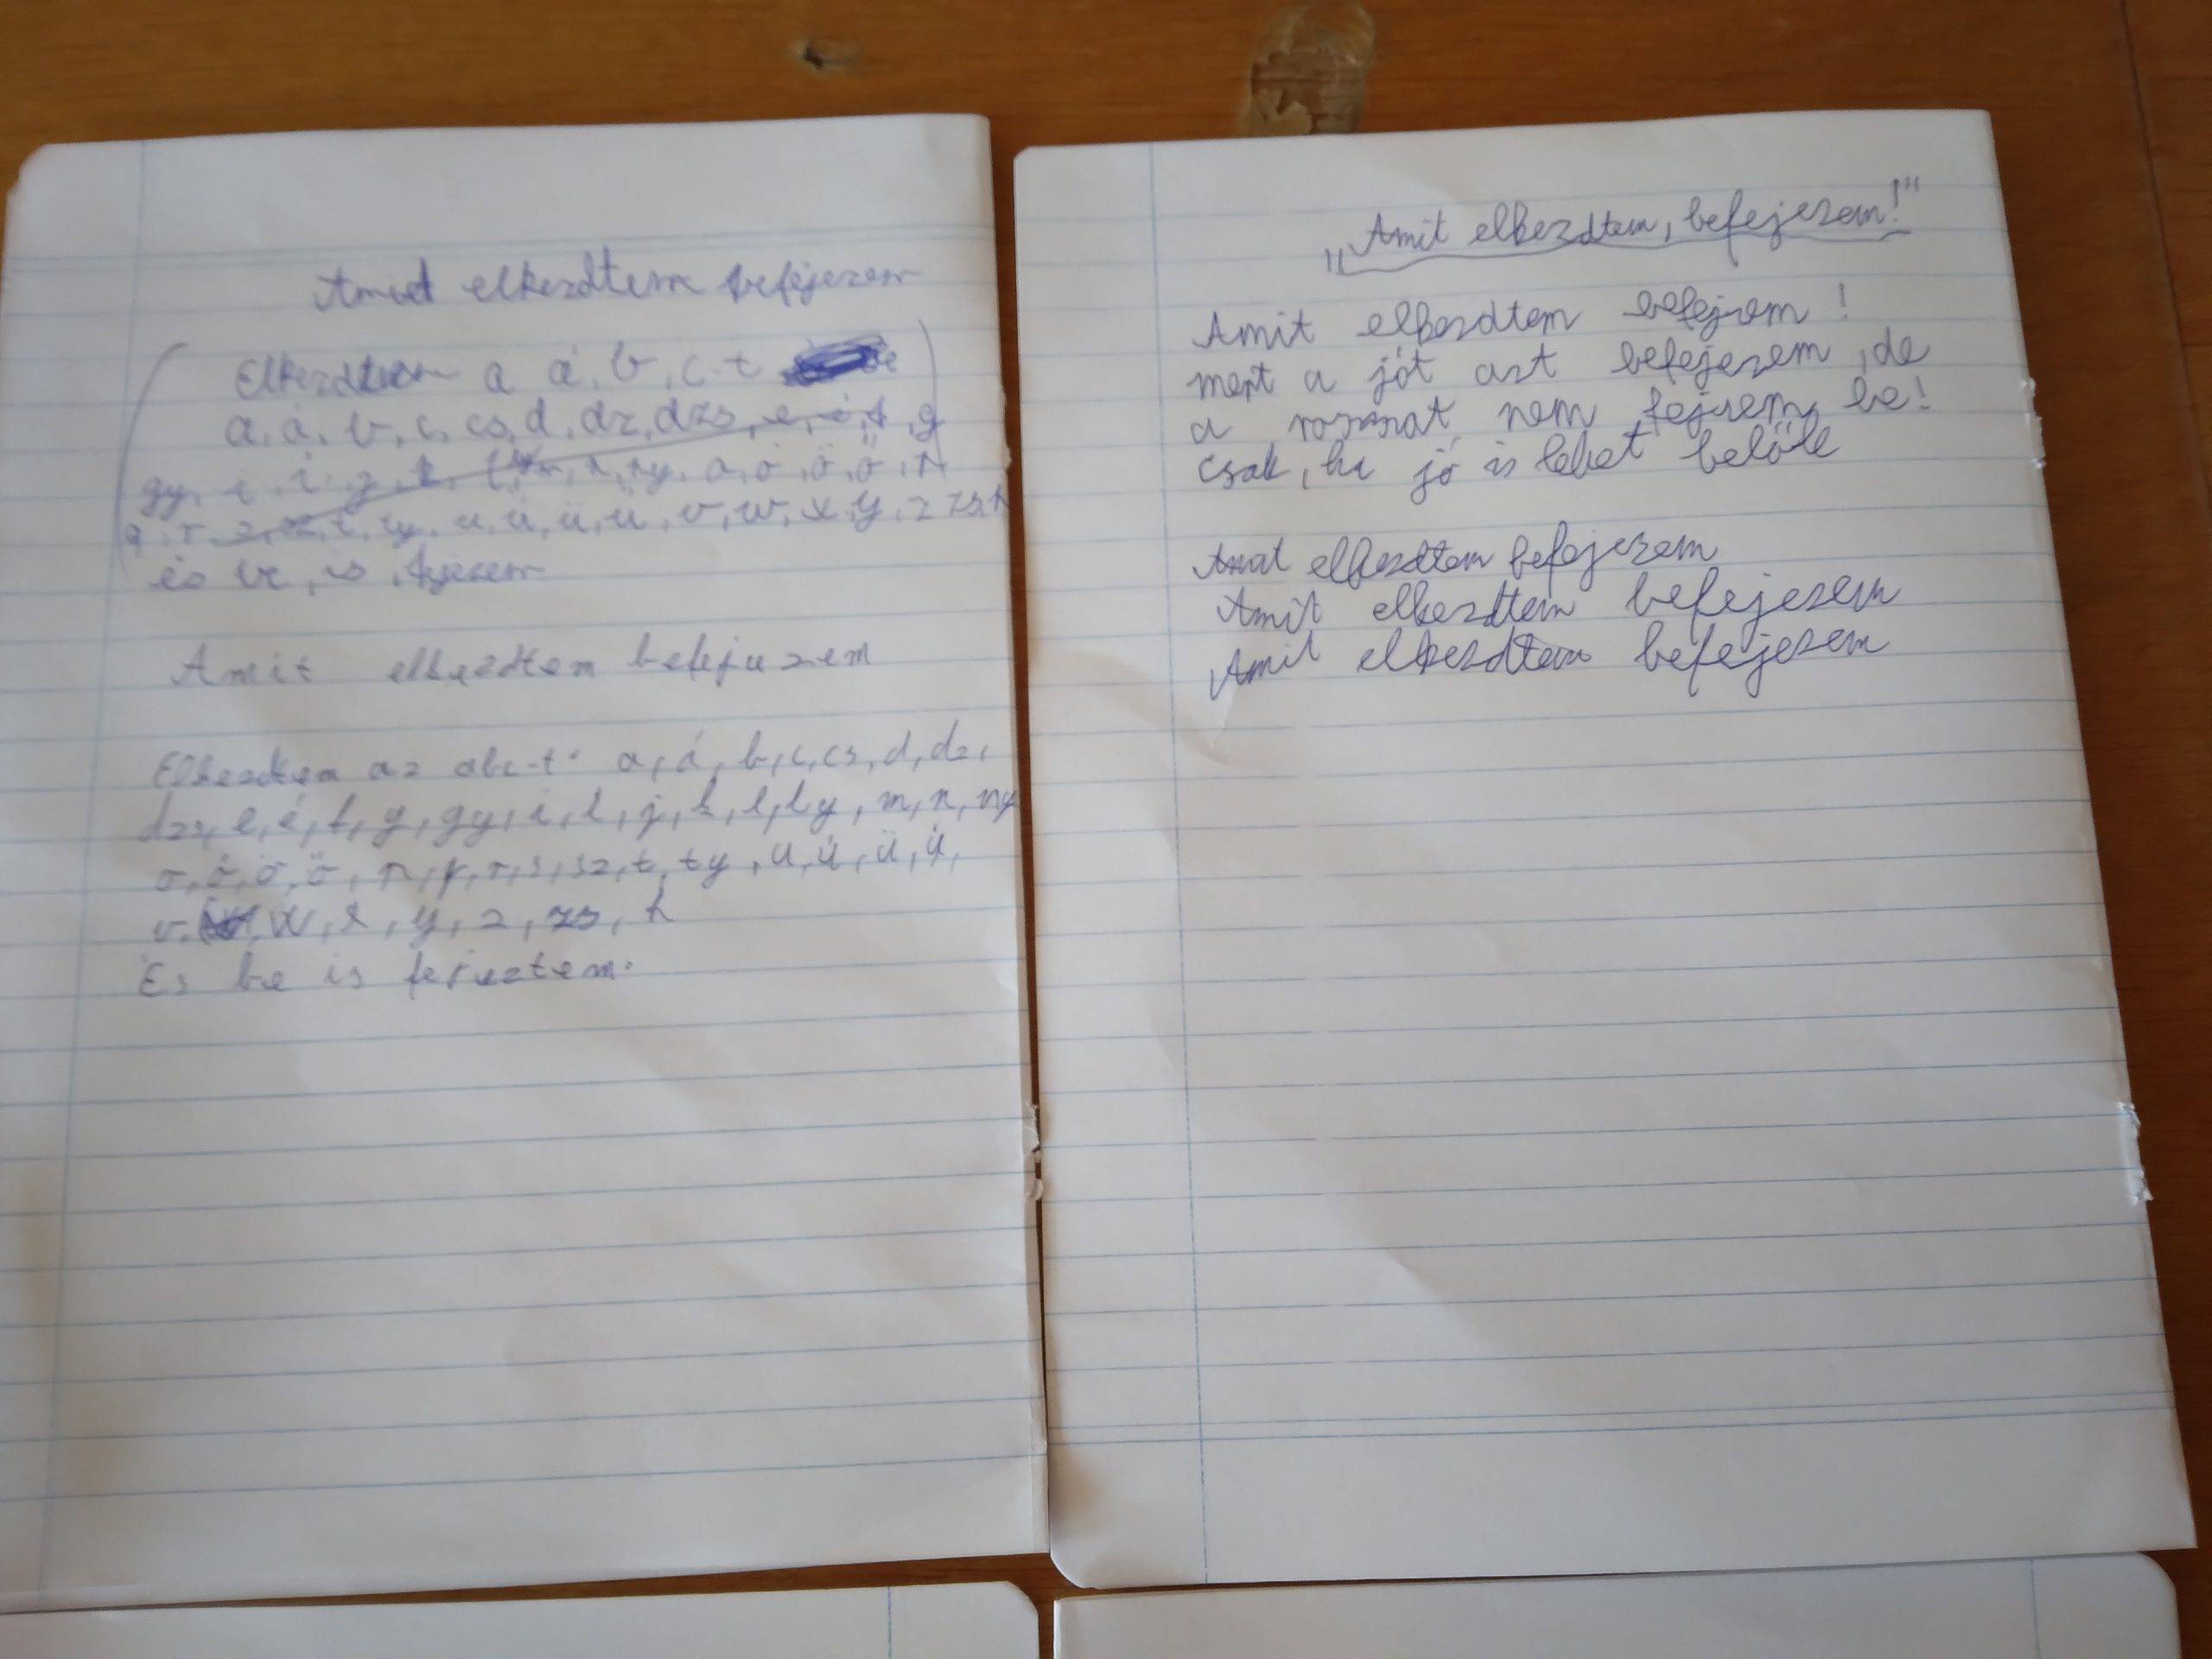 Amit elkezdtem befejezem
Elkezdtem a á, b, c-t
a, á, b, c, cs, d, dz, dzs, e, é, f, g
gy, i, í, j, k, l, n, ny, o, ó, ö, ő,
q, r, s, sz, t, ty, u, ú, ü, ű, v, w, x, y, z zs, h
és be, is, fejezem
Amit elkezdtem befejezem
Elkezdtem az abc-t: a, á, b, c, cs, d, dz,
dzs, e, é, f, g, gy, i, í, j, k, l, ly, m, n, ny
o, ó, ö, ő, p, r, s, sz, t, ty, u, ú, ü, ű,
v, W, x, y, z, zs, h
És be is fejeztem.
„Amit elkezdtem, befejezem!"
Amit elkezdtem befejzem!
mert a jót azt befejezem, de
a rosszat nem fejzem be!
Csak, ha jó is lehet belőle
elkezdtem befejezem
Amit elkezdtem befejezem
Amit elkezdtem befejezem